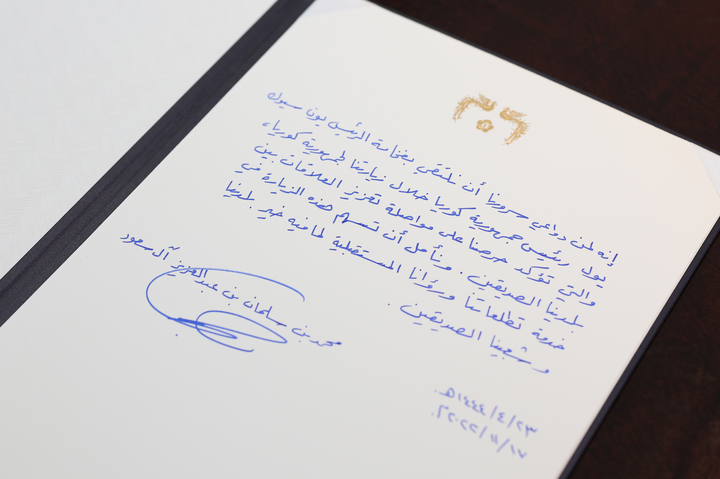 إنه لمن دواعي سرورنا أن نلتقي بفخامة الرئيس يون سيوك
يول رئيس جمهورية كوريا خلال زيارتنا لجمهورية كوريا،
والتي تؤكد حرصنا على مواصلة تعزيز العلاقات بين
بلدينا الصديقين. ونأمل أن تسهم هذه الزيارة في
خدمة تطلعاتنا ورؤانا المستقبلية لما فيه خير بلدينا
وشعبينا الصديقين.
محمد بن سلمان بن عبد العزيز آل سعود
٢٣/٤/١٤٤٤هـ.
١٧/١١/٢٠٢٢م.